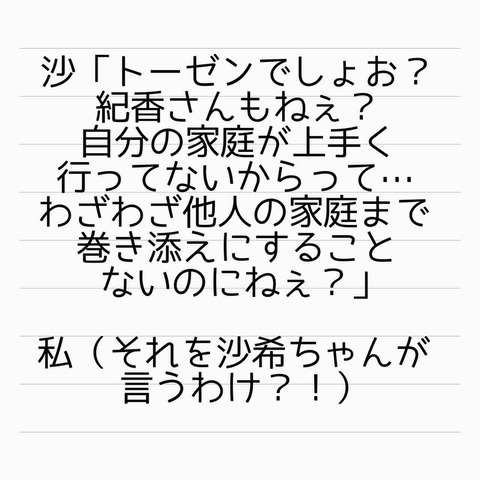 沙「トーゼンでしょお？
紀香さんもねぇ？
自分の家庭が上手く
行ってないからって…
わざわざ他人の家庭まで
巻き添えにすること
ないのにねぇ？」
私（それを沙希ちゃんが
言うわけ？！）